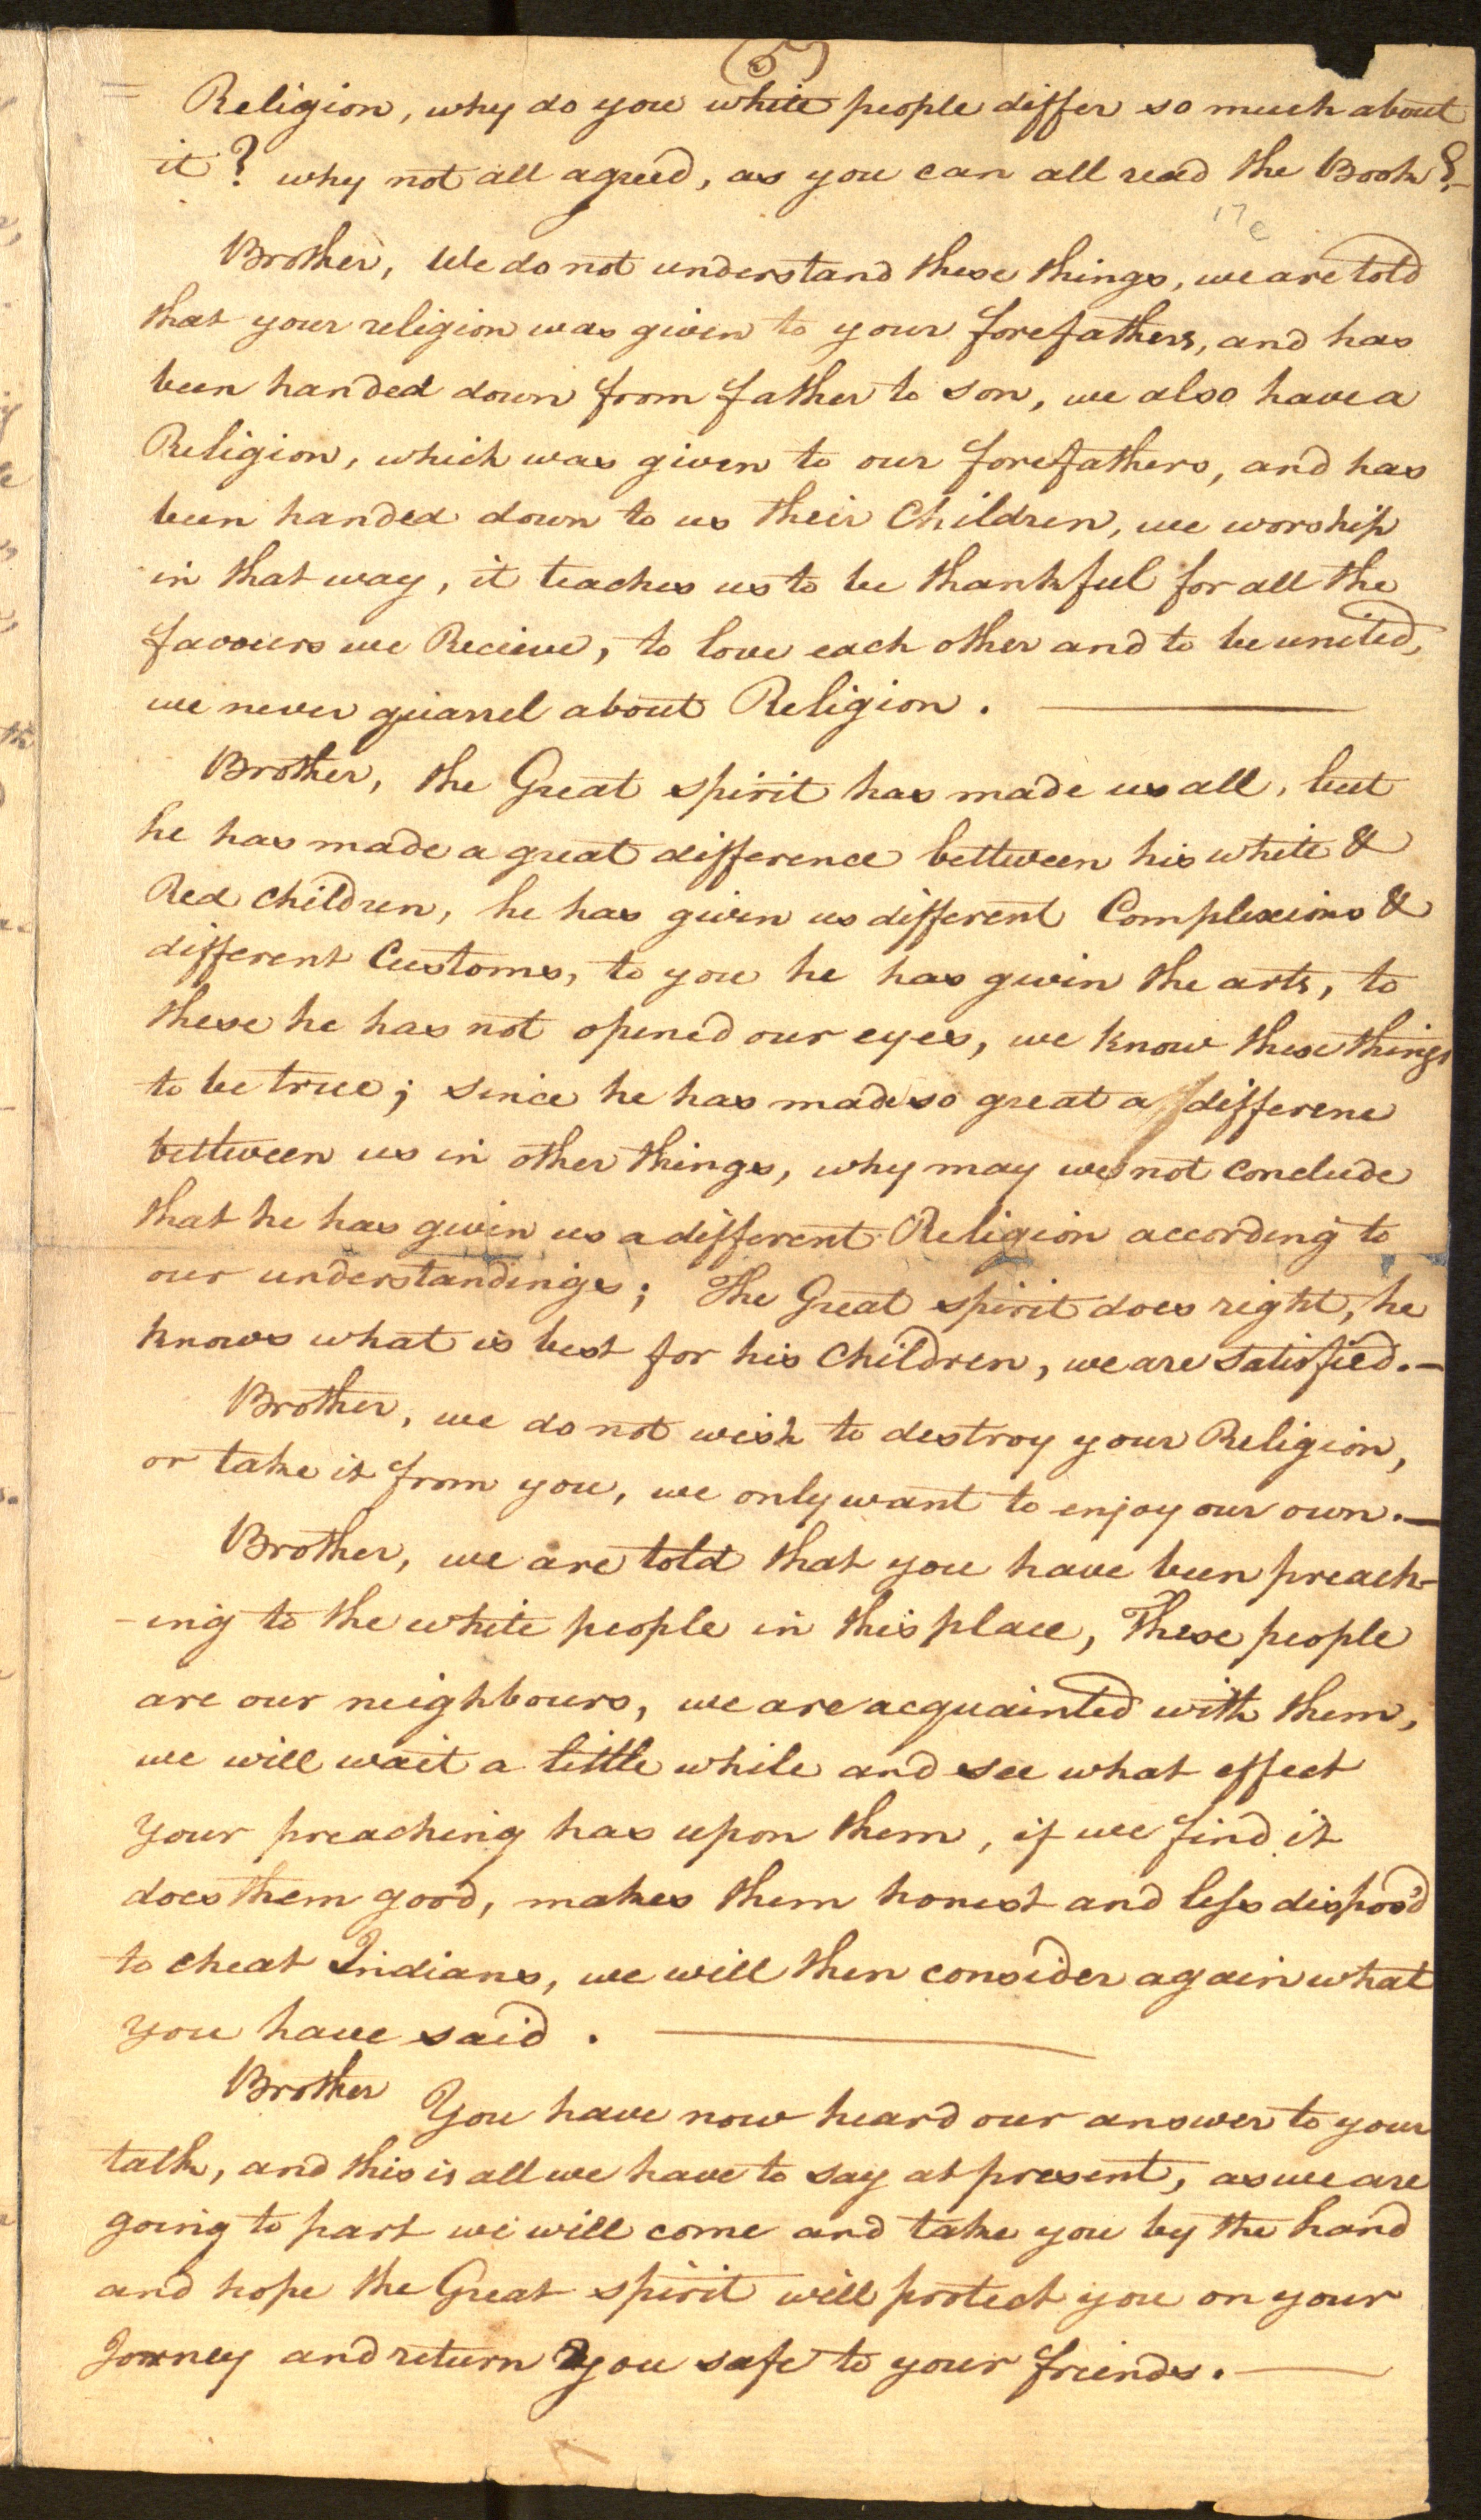 (5)
Religion, why do you white people differ so much about
it? why not all agreed, as you can all read the Book?-
Brother, We do not understand these things, we are told
that your religion was given to your forefathers, and has
been handed down from father to son, we also have a
Religion, which was given to our forefathers, and has
been handed down to us their Children, we worship
in that way, it teaches us to be thankful for all the
favours we Recieve, to love each other and to be united,
we never quarrel about Religion. —
Brother, the Great spirit has made us all, but
he has made a great difference bettween his white &
Red children, he has given us different Complexions &
different Customs, to you he has givin the arts, to
these he has not opened our eyes, we know these things
to be true; since he has made so great a differene
bettween us in other things, why may we not conclude
that he has givin us a different Religion according to
our understandings; The Great spirit does right, he
knows what is best for his Children, we are satisfied.—
Brother, we do not wish to destroy your Religion,
or take it from you, we only want to enjoy our own.—
Brother, we are told that you have been preach-
-ing to the white people in this place, These people
are our neighbours, we are acquainted with them,
we will wait a little while and see what effect
your preaching has upon them, if we find it
does them good, makes them honest and less dispos'd
to cheat Indians, we will then consider again what
you have said. —
Brother You have now heard our answer to your
talk, and this is all we have to say at present, as we are
going to part we will come and take you by the hand
and hope the Great spirit will protect you on your
Jorney and return you safe to your friends. —